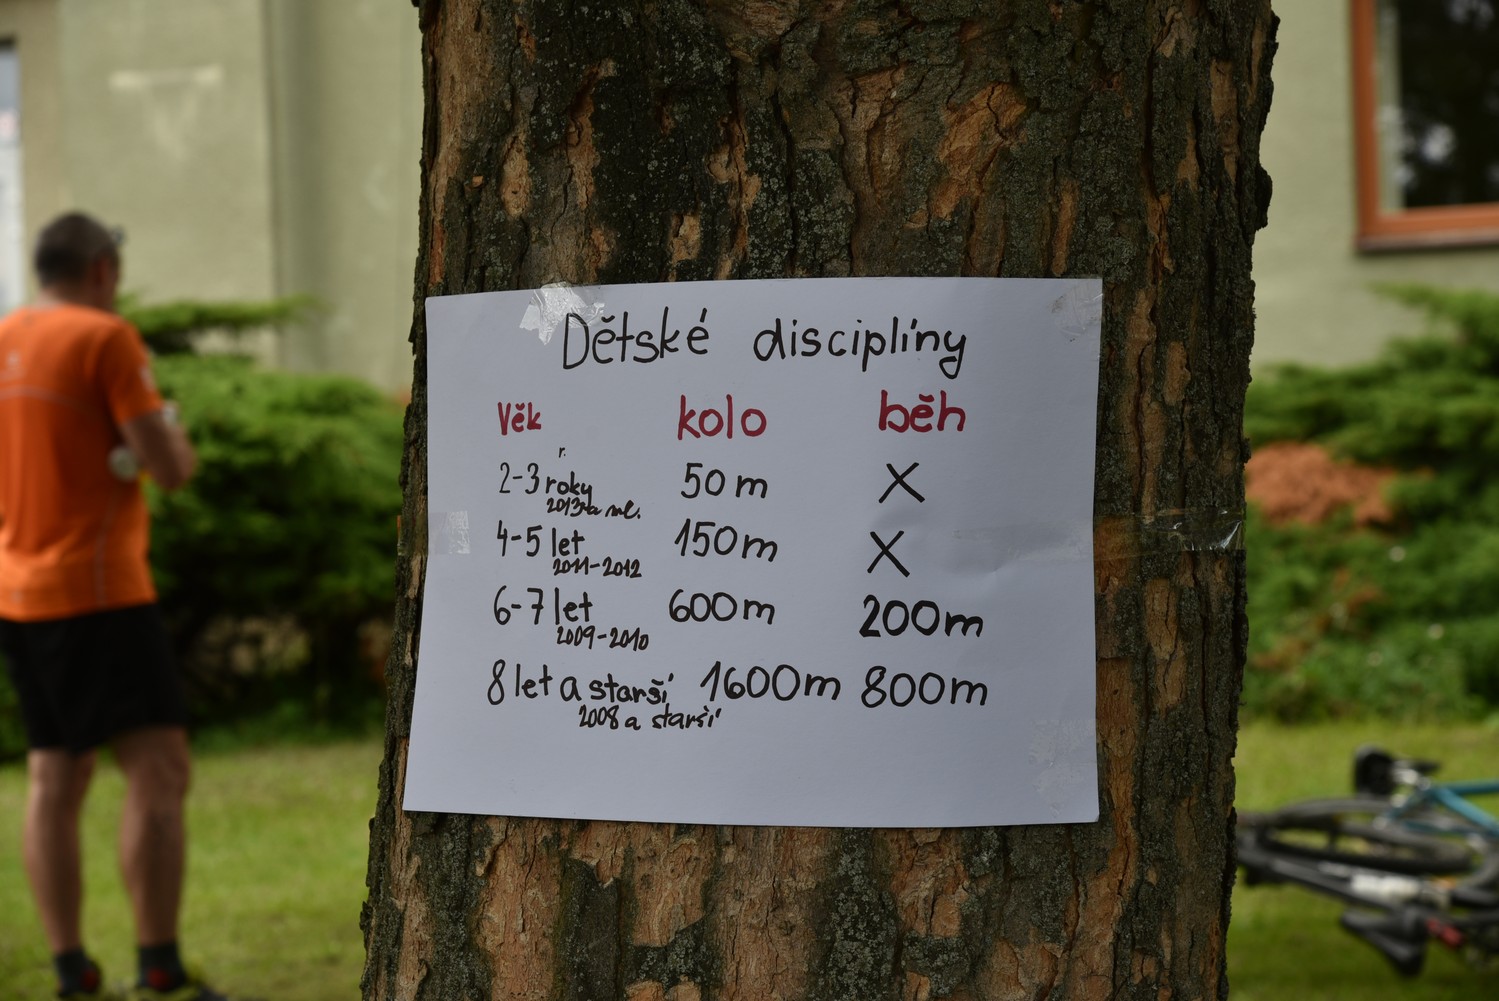 Dětské disciplíny
Věk kolo běh
ř.
2-3 roky 50m X
2013 a ml.
4-5 let 150m X
2011-2012
6-7 let 600m 200m
2009-2010
8 let a starší 1600m 800m
2008 a starší